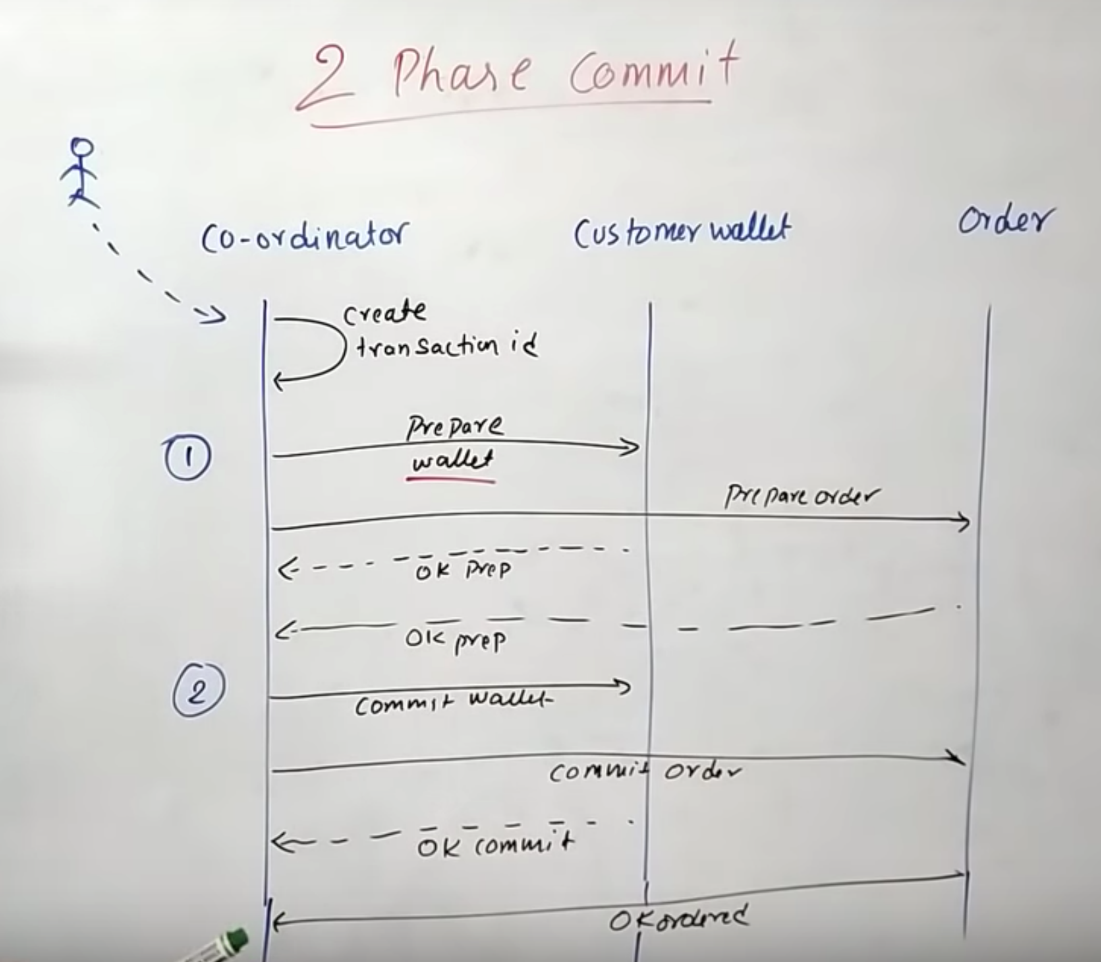 2 Phase Commit
Co-ordinator
Customer wallet
Order
create
transaction id
1
Prepare
wallet
Prepare order
OK Prep
OK prep
2
Commit wallet
Commit Order
OK commit
OK ordered